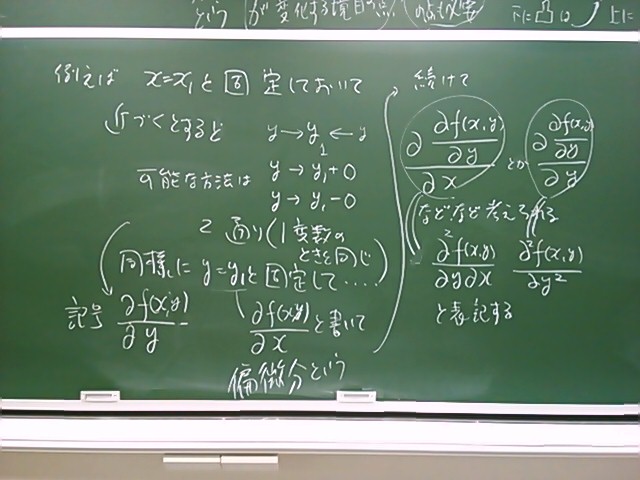 という が変化する境目の点 の点も必要 下に凸は 上に
例えば x=x₁と固定しておいて
近づくとすると y→y₁←y
可能な方法は y→y₁+0
y→y₁-0
2通り(1変数の
ときと同じ)
同様に y=y₁と固定して‥‥
記号 ∂f(x,y)/∂y ∂f(x,y)/∂x と書いて
偏微分という
続けて
∂ ∂f(x,y)/∂y / ∂x とか ∂ ∂f(x,y)/∂y / ∂y
などなど考えられる
∂²f(x,y)/∂y∂x ∂²f(x,y)/∂y²
と表記する